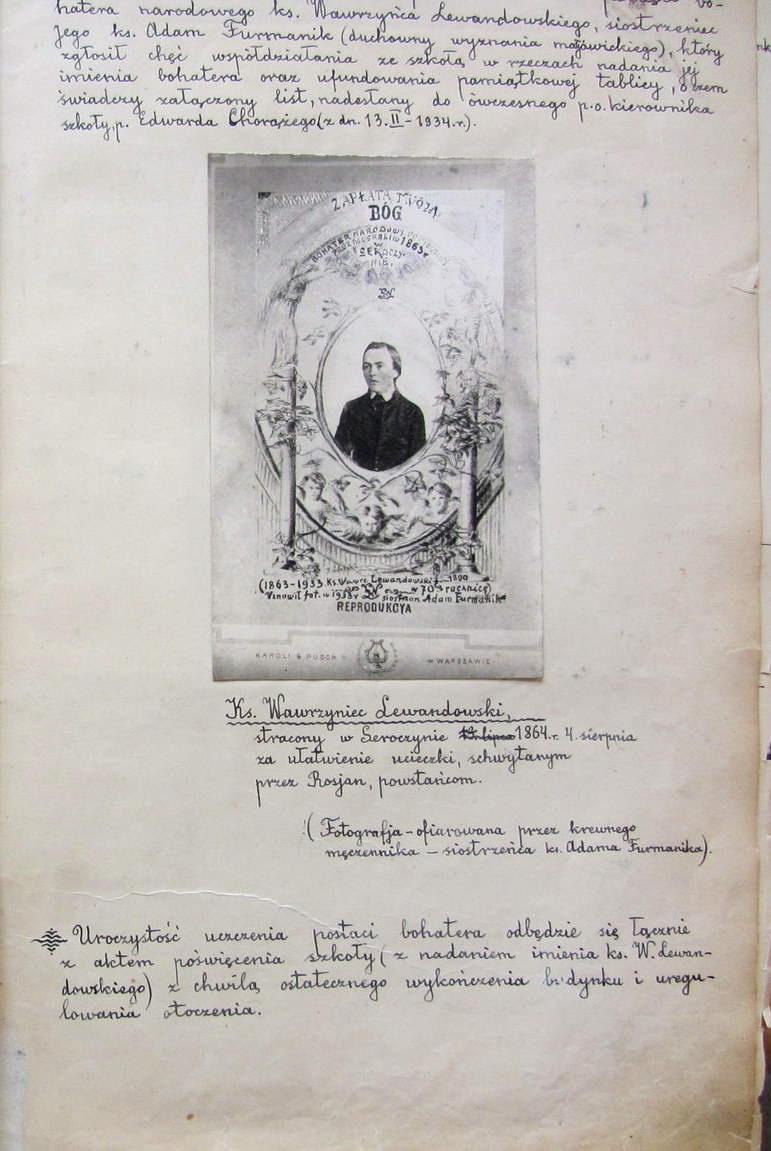 hatera narodowego ks. Wawrzyńca Lewandowskiego, siostrzeniec
jego ks. Adam Furmanik (duchowny wyznania marjawickiego), który
zgłosił chęć współdziałania ze szkołą w rzeczach nadania jej
imienia bohatera oraz ufundowania pamiątkowej tablicy, o czem
świadczy załączony list, nadesłany do ówczesnego p.o. kierownika
szkoły, p. Edwarda Chorążego (z dn. 13.II-1934.r.).
ZAPŁATA TWOJA
BÓG
BOHATER NARODOWY
1863r
W
SEROCZY-
NIE.
(1863-1933. Ks. Wawrz Lewandowski 1890
w 70 rocznicę)
Wznowił fot. w 1933r siostrzan Adam Furmanik
REPRODUKCYA
KAROLI & PUSCH w WARSZAWIE
Ks. Wawrzyniec Lewandowski,
stracony w Seroczynie 1864.r. 4. sierpnia
za ułatwienie ucieczki, schwytanym
przez Rosjan, powstańcom.
(Fotografja - ofiarowana przez krewnego
męczennika – siostrzeńca ks. Adama Furmanika).
Uroczystość uczczenia postaci bohatera odbędzie się łącznie
z aktem poświęcenia szkoły (z nadaniem imienia ks. W. Lewan-
dowskiego) z chwilą ostatecznego wykończenia budynku i uregu-
lowania otoczenia.